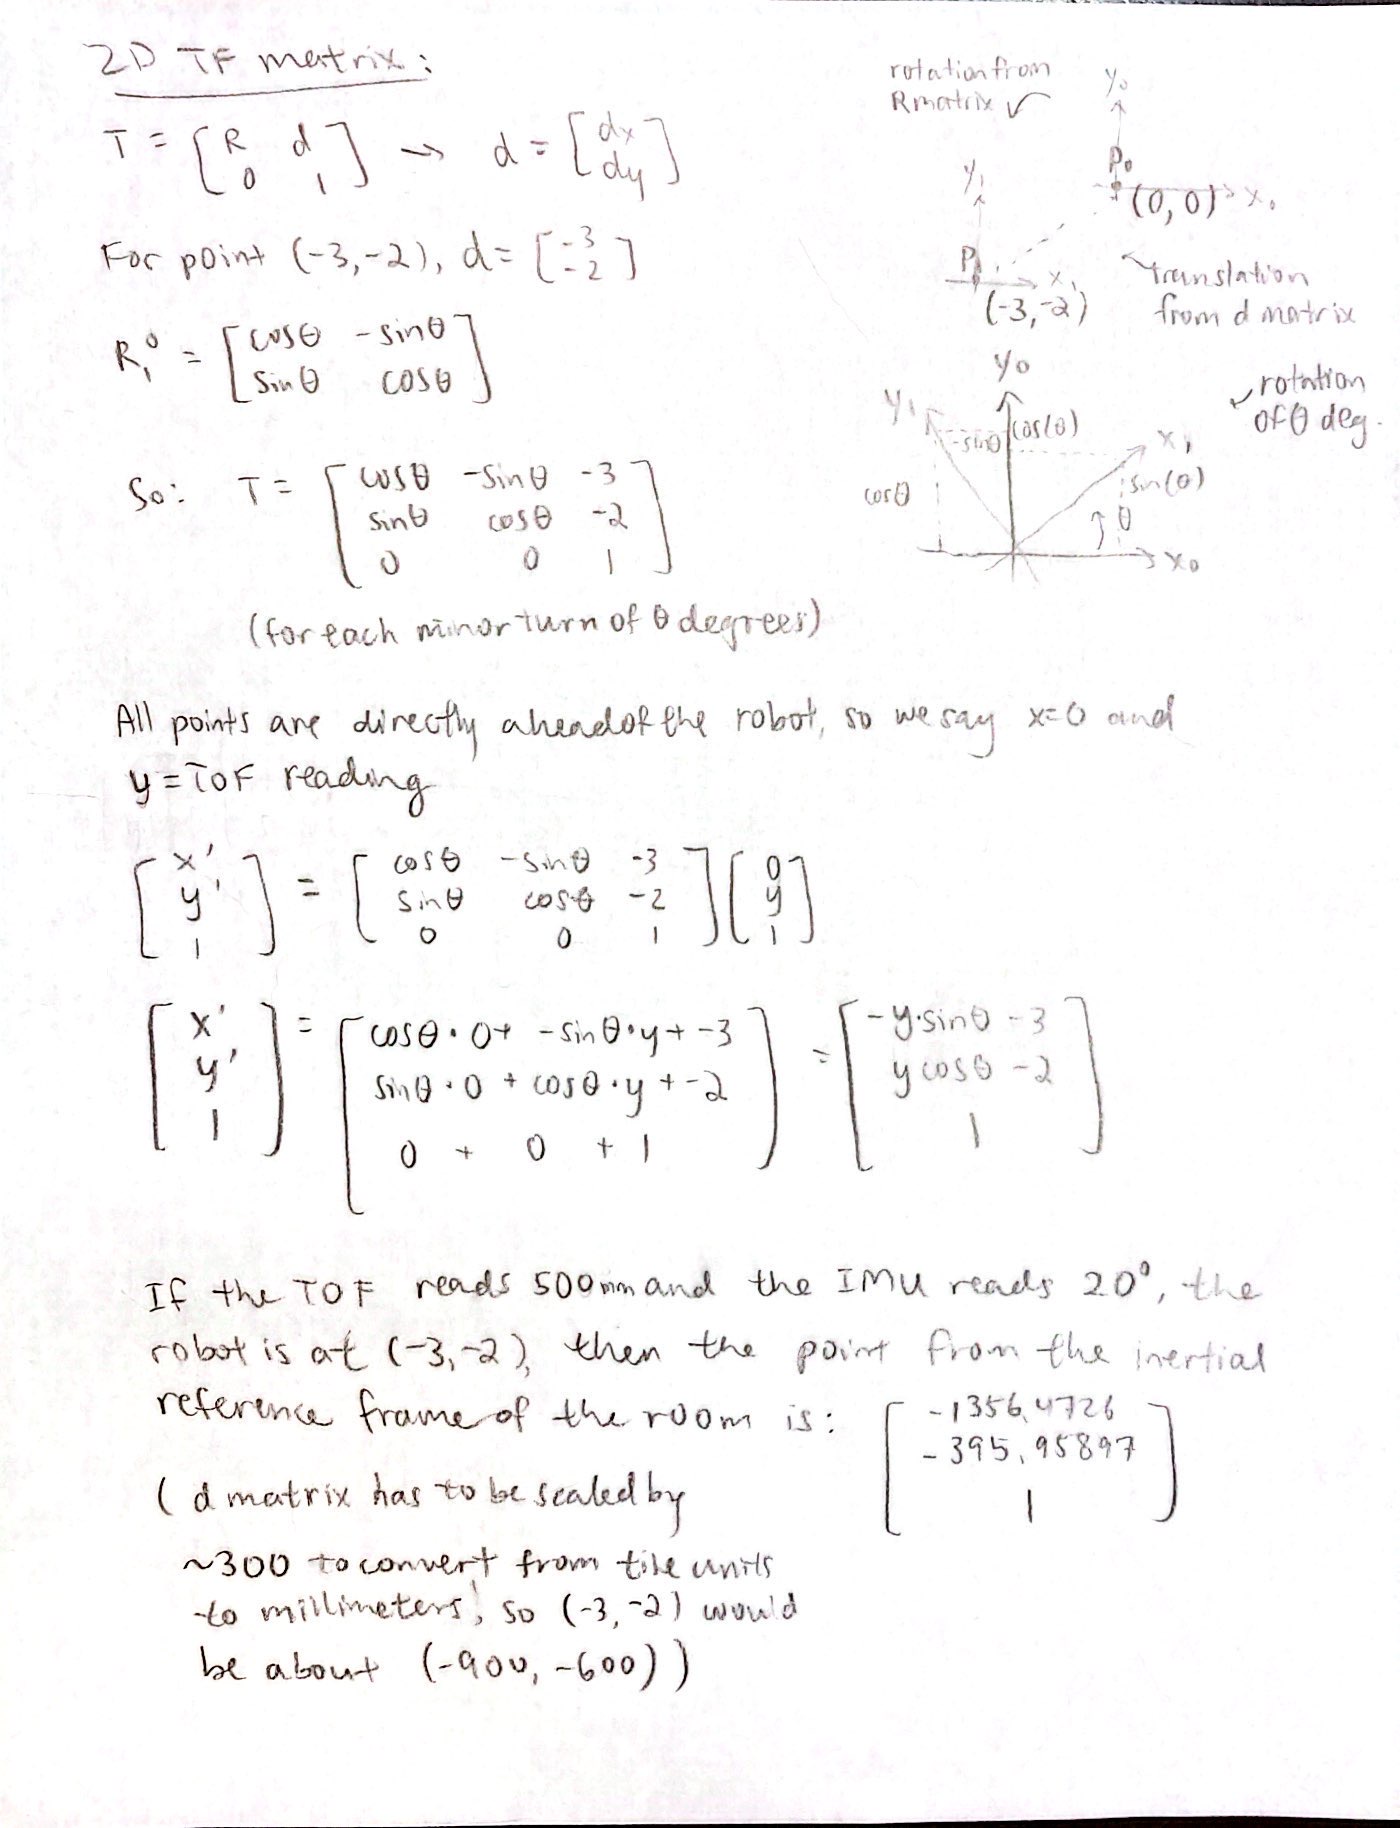 2D TF matrix:
T = [R d
0 1] → d = [dx
dy]
For point (-3,-2), d = [-3
-2]
R₁⁰ = [cosθ -sinθ
sinθ cosθ]
So: T = [cosθ -sinθ -3
sinθ cosθ -2
0 0 1]
(for each minor turn of θ degrees)
rotation from
R matrix
y₀
P₀
(0,0) x₀
y₁
P₁
x₁
(-3,-2)
translation
from d matrix
y₀
y₁
-sinθ
cos(θ)
x₁
sin(θ)
cosθ
θ
x₀
rotation
of θ deg.
All points are directly ahead of the robot, so we say x=0 and
y = TOF reading
[x'
y'
1] = [cosθ -sinθ -3
sinθ cosθ -2
0 0 1] [0
y
1]
[x'
y'
1] = [cosθ·0+ -sinθ·y+ -3
sinθ·0 + cosθ·y + -2
0 + 0 + 1] = [-y·sinθ -3
ycosθ -2
1]
If the TOF reads 500mm and the IMU reads 20°, the
robot is at (-3,-2), then the point from the inertial
reference frame of the room is: [-1356.4726
-395.95897
1]
(d matrix has to be scaled by
~300 to convert from tile units
to millimeters, so (-3,-2) would
be about (-900,-600))